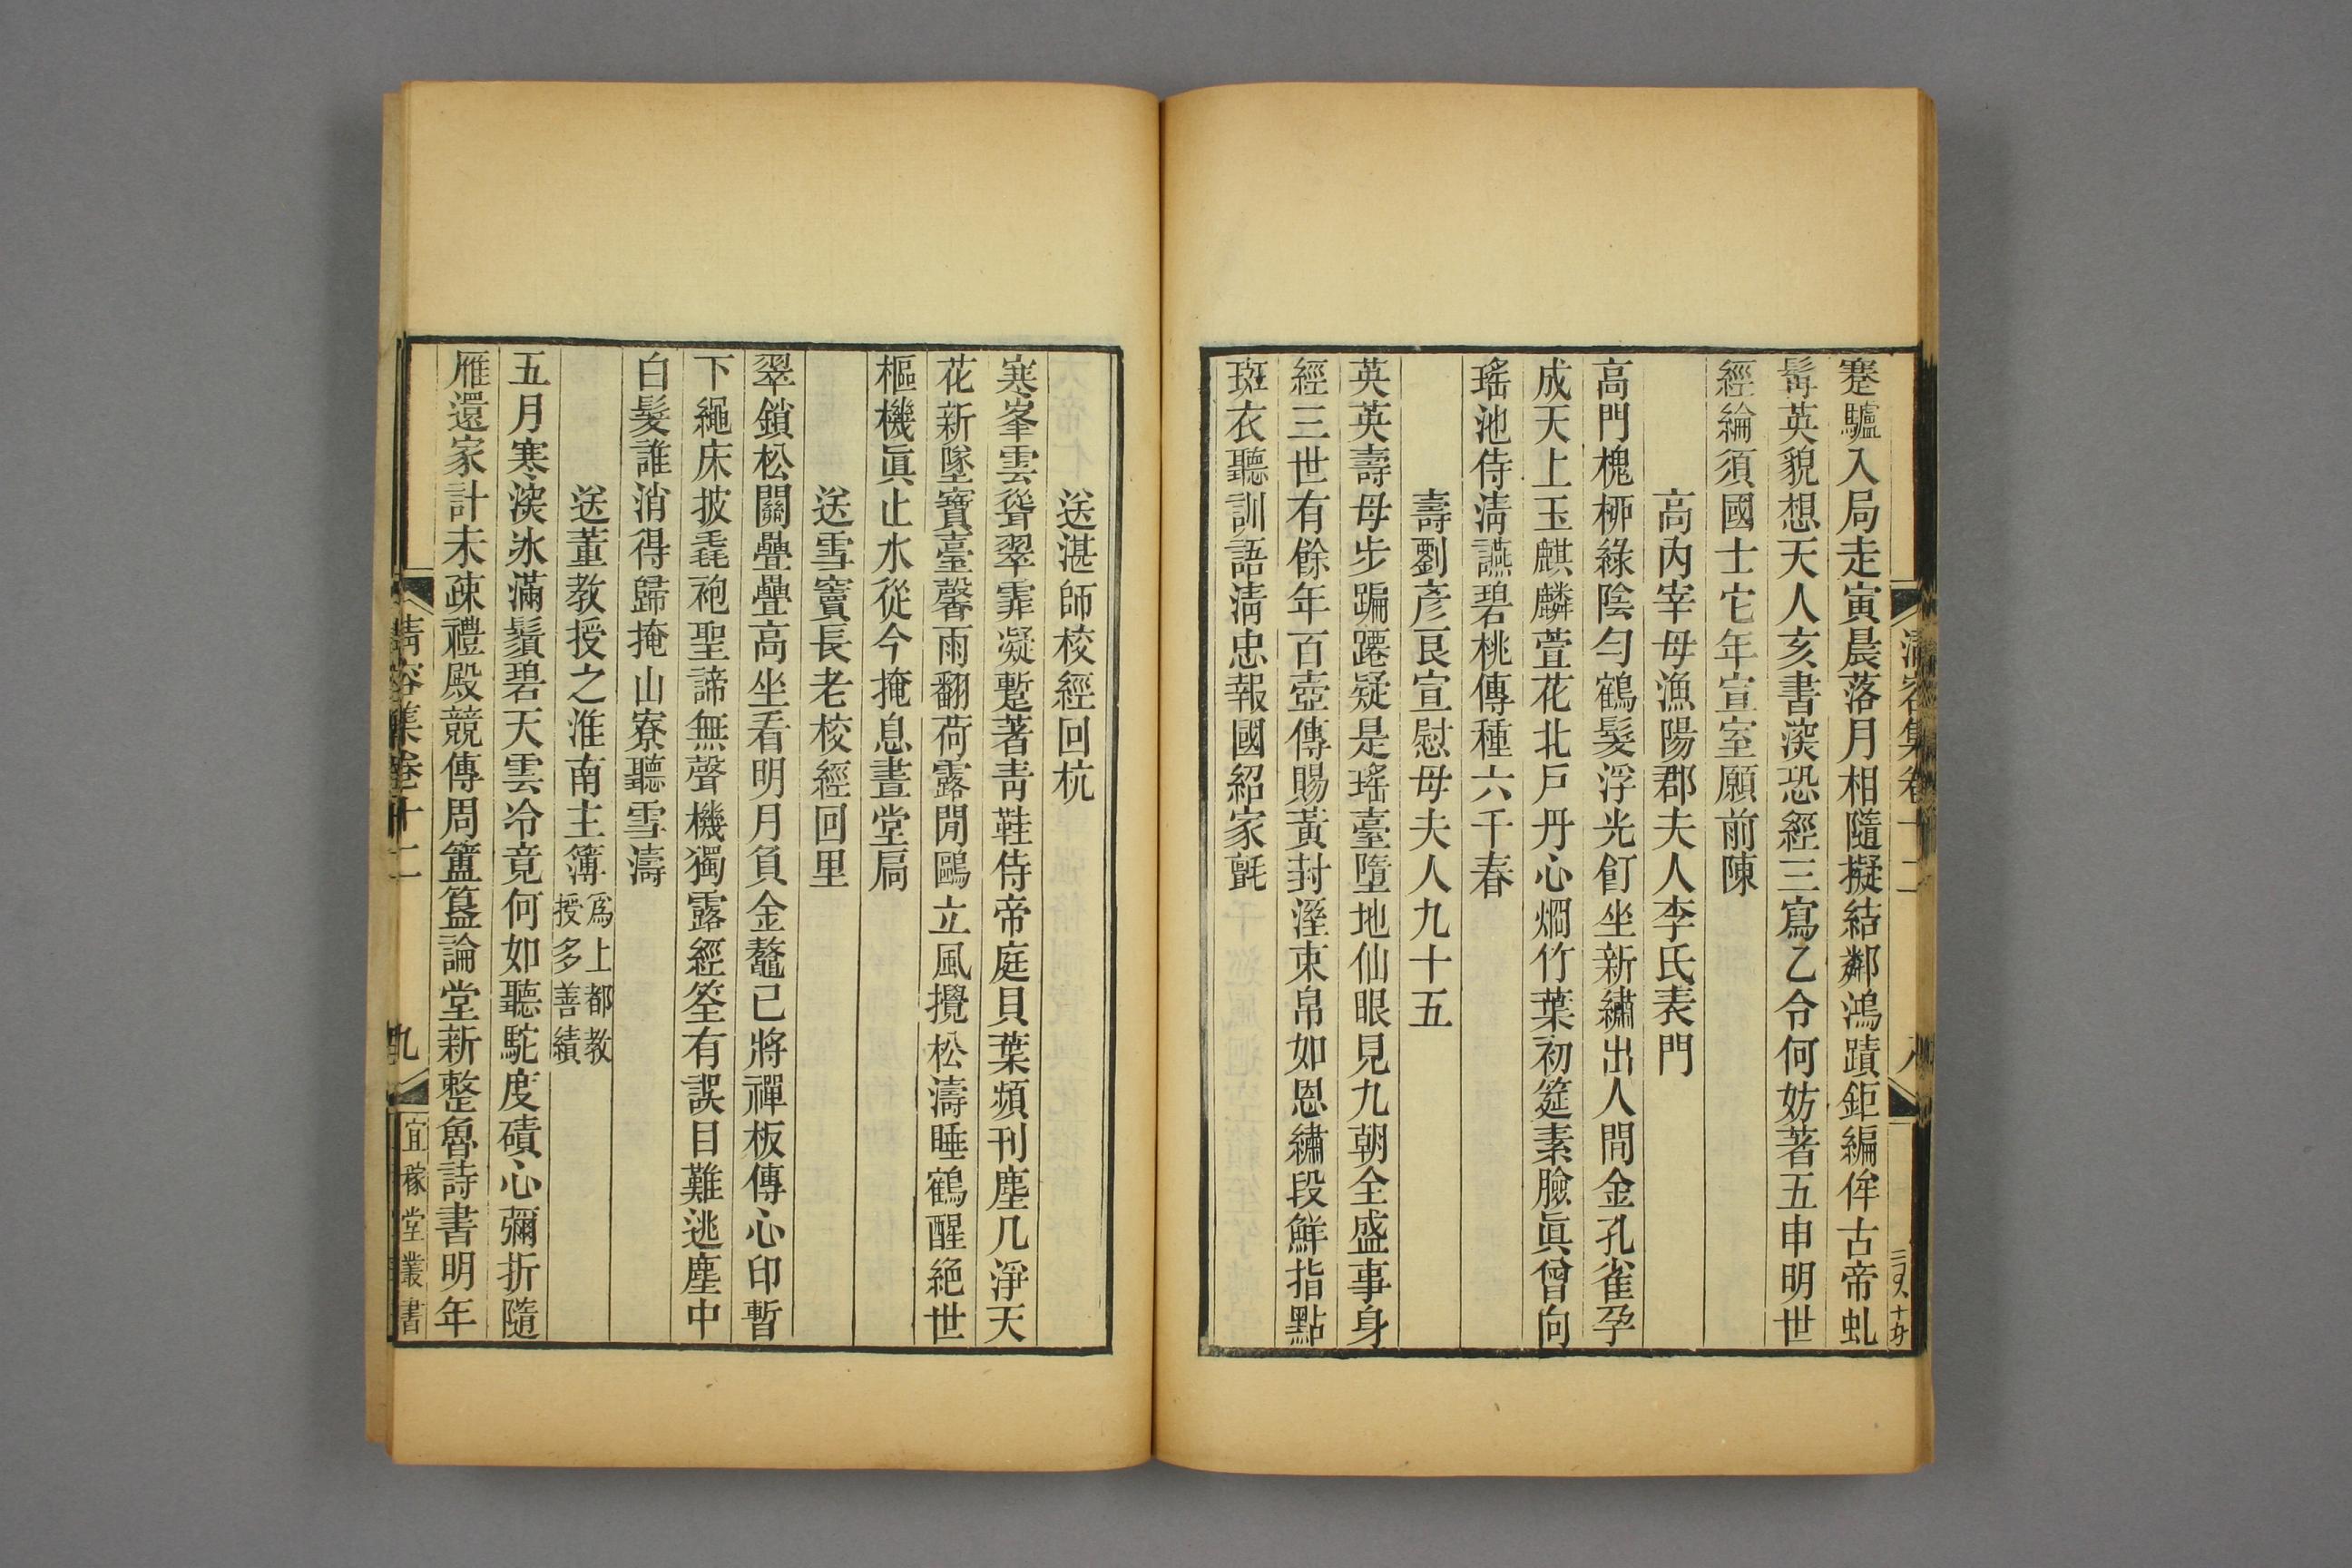 清容集卷十二
八
蹇驢入局走寅晨落月相隨擬結鄰鴻蹟鉅編侔古帝虬
髯英貌想天人亥書深恐經三寫乙令何妨著五申明世
經綸須國士它年宣室願前陳
高內宰母漁陽郡夫人李氏表門
高門槐柳綠陰勻鶴髮浮光飣坐新繡出人間金孔雀孕
成天上玉麒麟萱花北戶丹心烱竹葉初筵素臉眞曾向
瑤池侍淸讌碧桃傳種六千春
壽劉彥艮宣慰母夫人九十五
英英壽母步蹁躚疑是瑤臺墮地仙眼見九朝全盛事身
經三世有餘年百壺傳賜黃封溼束帛如恩繡段鮮指點
斑衣聽訓語淸忠報國紹家氈
送湛師校經回杭
寒峯雲聳翠霏凝蹔著靑鞋侍帝庭貝葉頻刊塵几淨天
花新墜寶臺馨雨翻荷露閒鷗立風攪松濤睡鶴醒絕世
樞機眞止水從今掩息晝堂扃
送雪竇長老校經回里
翠鎖松關疊疊高坐看明月負金鼇已將禪板傳心印暫
下繩床披毳袍聖諦無聲機獨露經筌有誤目難逃塵中
白髮誰消得歸掩山寮聽雪濤
送董教授之淮南主簿爲上都教
授多善績
五月寒深冰滿鬚碧天雲冷竟何如聽駝度磧心彌折隨
雁還家計未疎禮殿競傳周簠簋論堂新整魯詩書明年
清容集卷十二
九
宜稼堂叢書